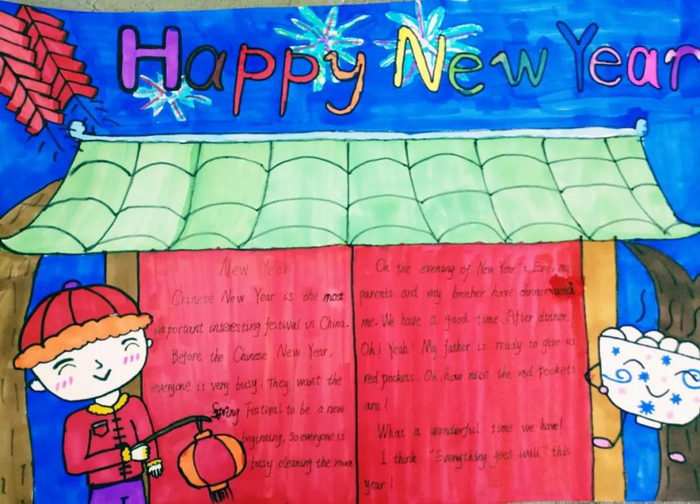 Happy New Year
New Year
Chinese New Year is the most
important interesting festival in China.
Before the Chinese New Year,
everyone is very busy. They want the
Spring Festival to be a new
beginning, so everyone is
busy cleaning the room
On the evening of New Year's Eve, my
parents and my brother have dinner
me. We have a good time. After dinner,
Oh! Yeah! My father is ready to give us
red pockets. Oh, how nice the red pockets
are!
What a wonderful time we have!
I think "Everything goes well" this
year!